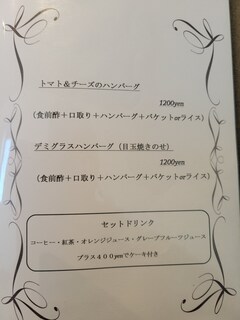 トマト＆チーズのハンバーグ
1200yen
（食前酢＋口取り＋ハンバーグ＋バケットorライス）
デミグラスハンバーグ（目玉焼きのせ）
1200yen
（食前酢＋口取り＋ハンバーグ＋バケットorライス）
セットドリンク
コーヒー・紅茶・オレンジジュース・グレープフルーツジュース
プラス４００yenでケーキ付き